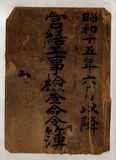 昭和十五年六月以降
営繕工事検査命令簿